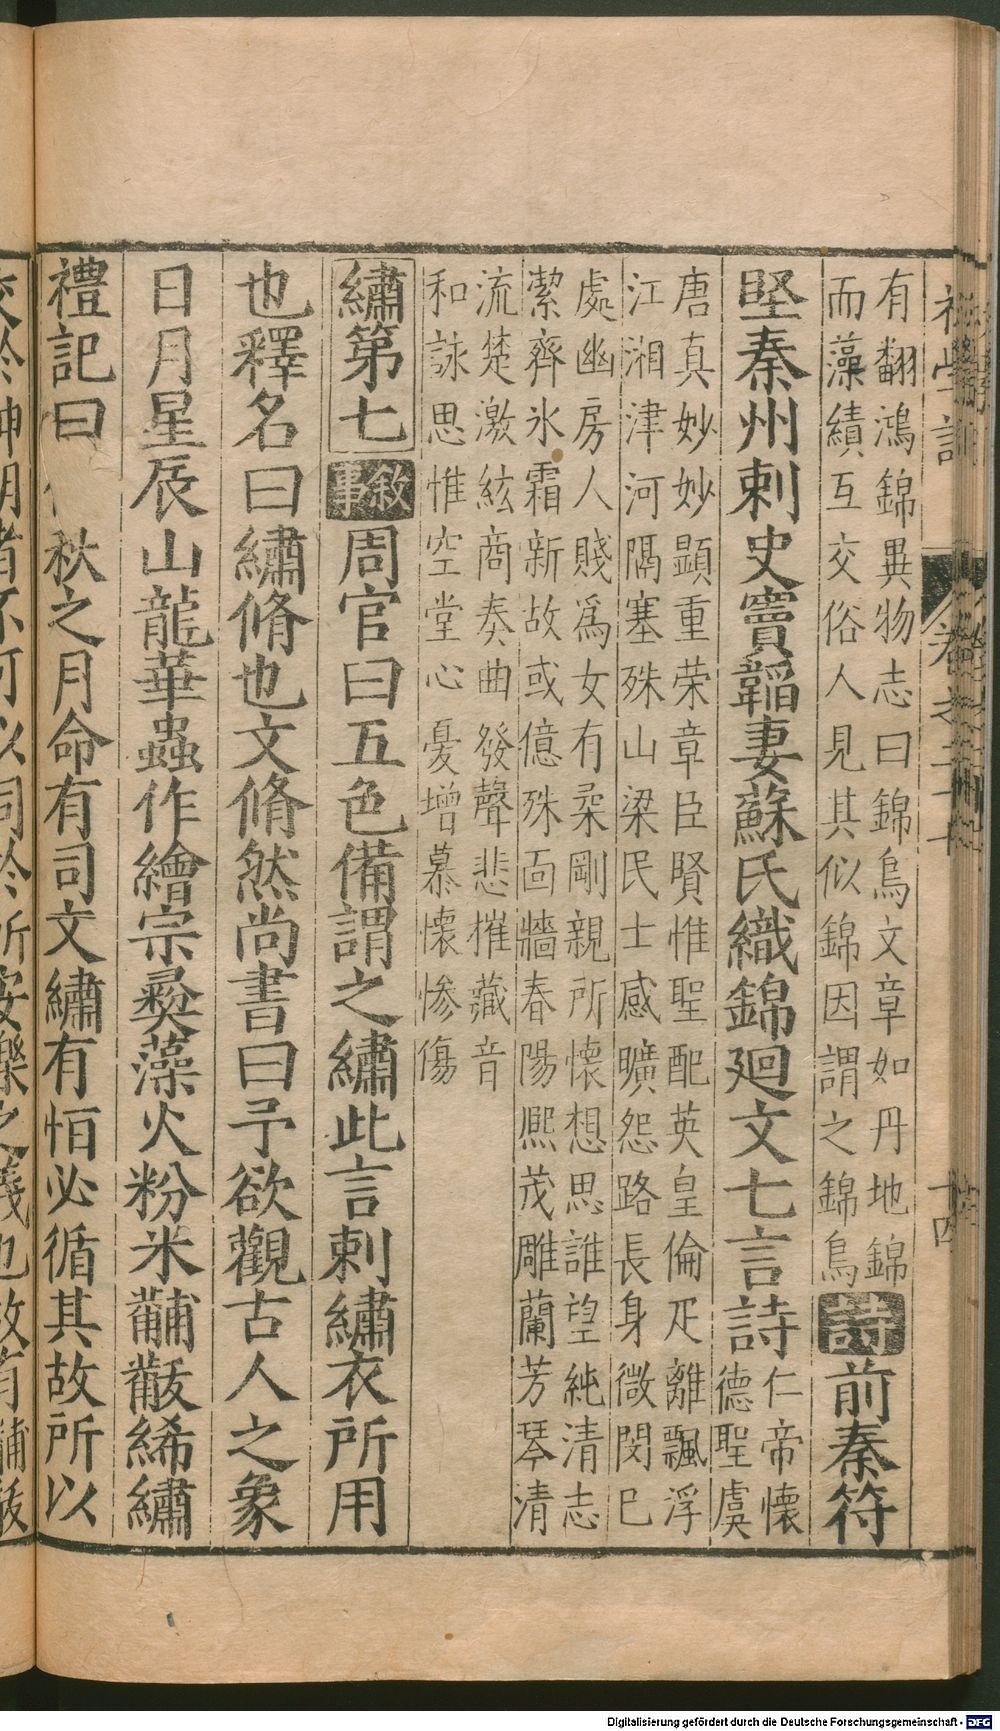 有翻鴻錦異物志曰錦鳥文章如丹地錦
而藻繢互交俗人見其似錦因謂之錦鳥
詩前秦符
堅秦州刺史竇韜妻蘇氏織錦廻文七言詩
仁帝懷
德聖虞
唐真妙妙顯重荣章臣賢惟聖配英皇倫疋離飄浮
江湘津河隔塞殊山梁民士感曠怨路長身微閔已
處幽房人賤為女有柔剛親所懷想思誰望純清志
潔齊氷霜新故或億殊面牆春陽熙茂雕蘭芳琴清
流楚激絃商奏曲發聲悲摧藏音
和詠思惟空堂心憂增慕懷慘傷
繡第七
敘事
周官曰五色備謂之繡此言刺繡衣所用
也釋名曰繡脩也文脩然尚書曰予欲觀古人之象
日月星辰山龍華蟲作繪宗彛藻火粉米黼黻絺繡
禮記曰 秋之月命有司文繡有恒必循其故所以
卷之二十
十四
Digitalisierung gefördert durch die Deutsche Forschungsgemeinschaft - DFG